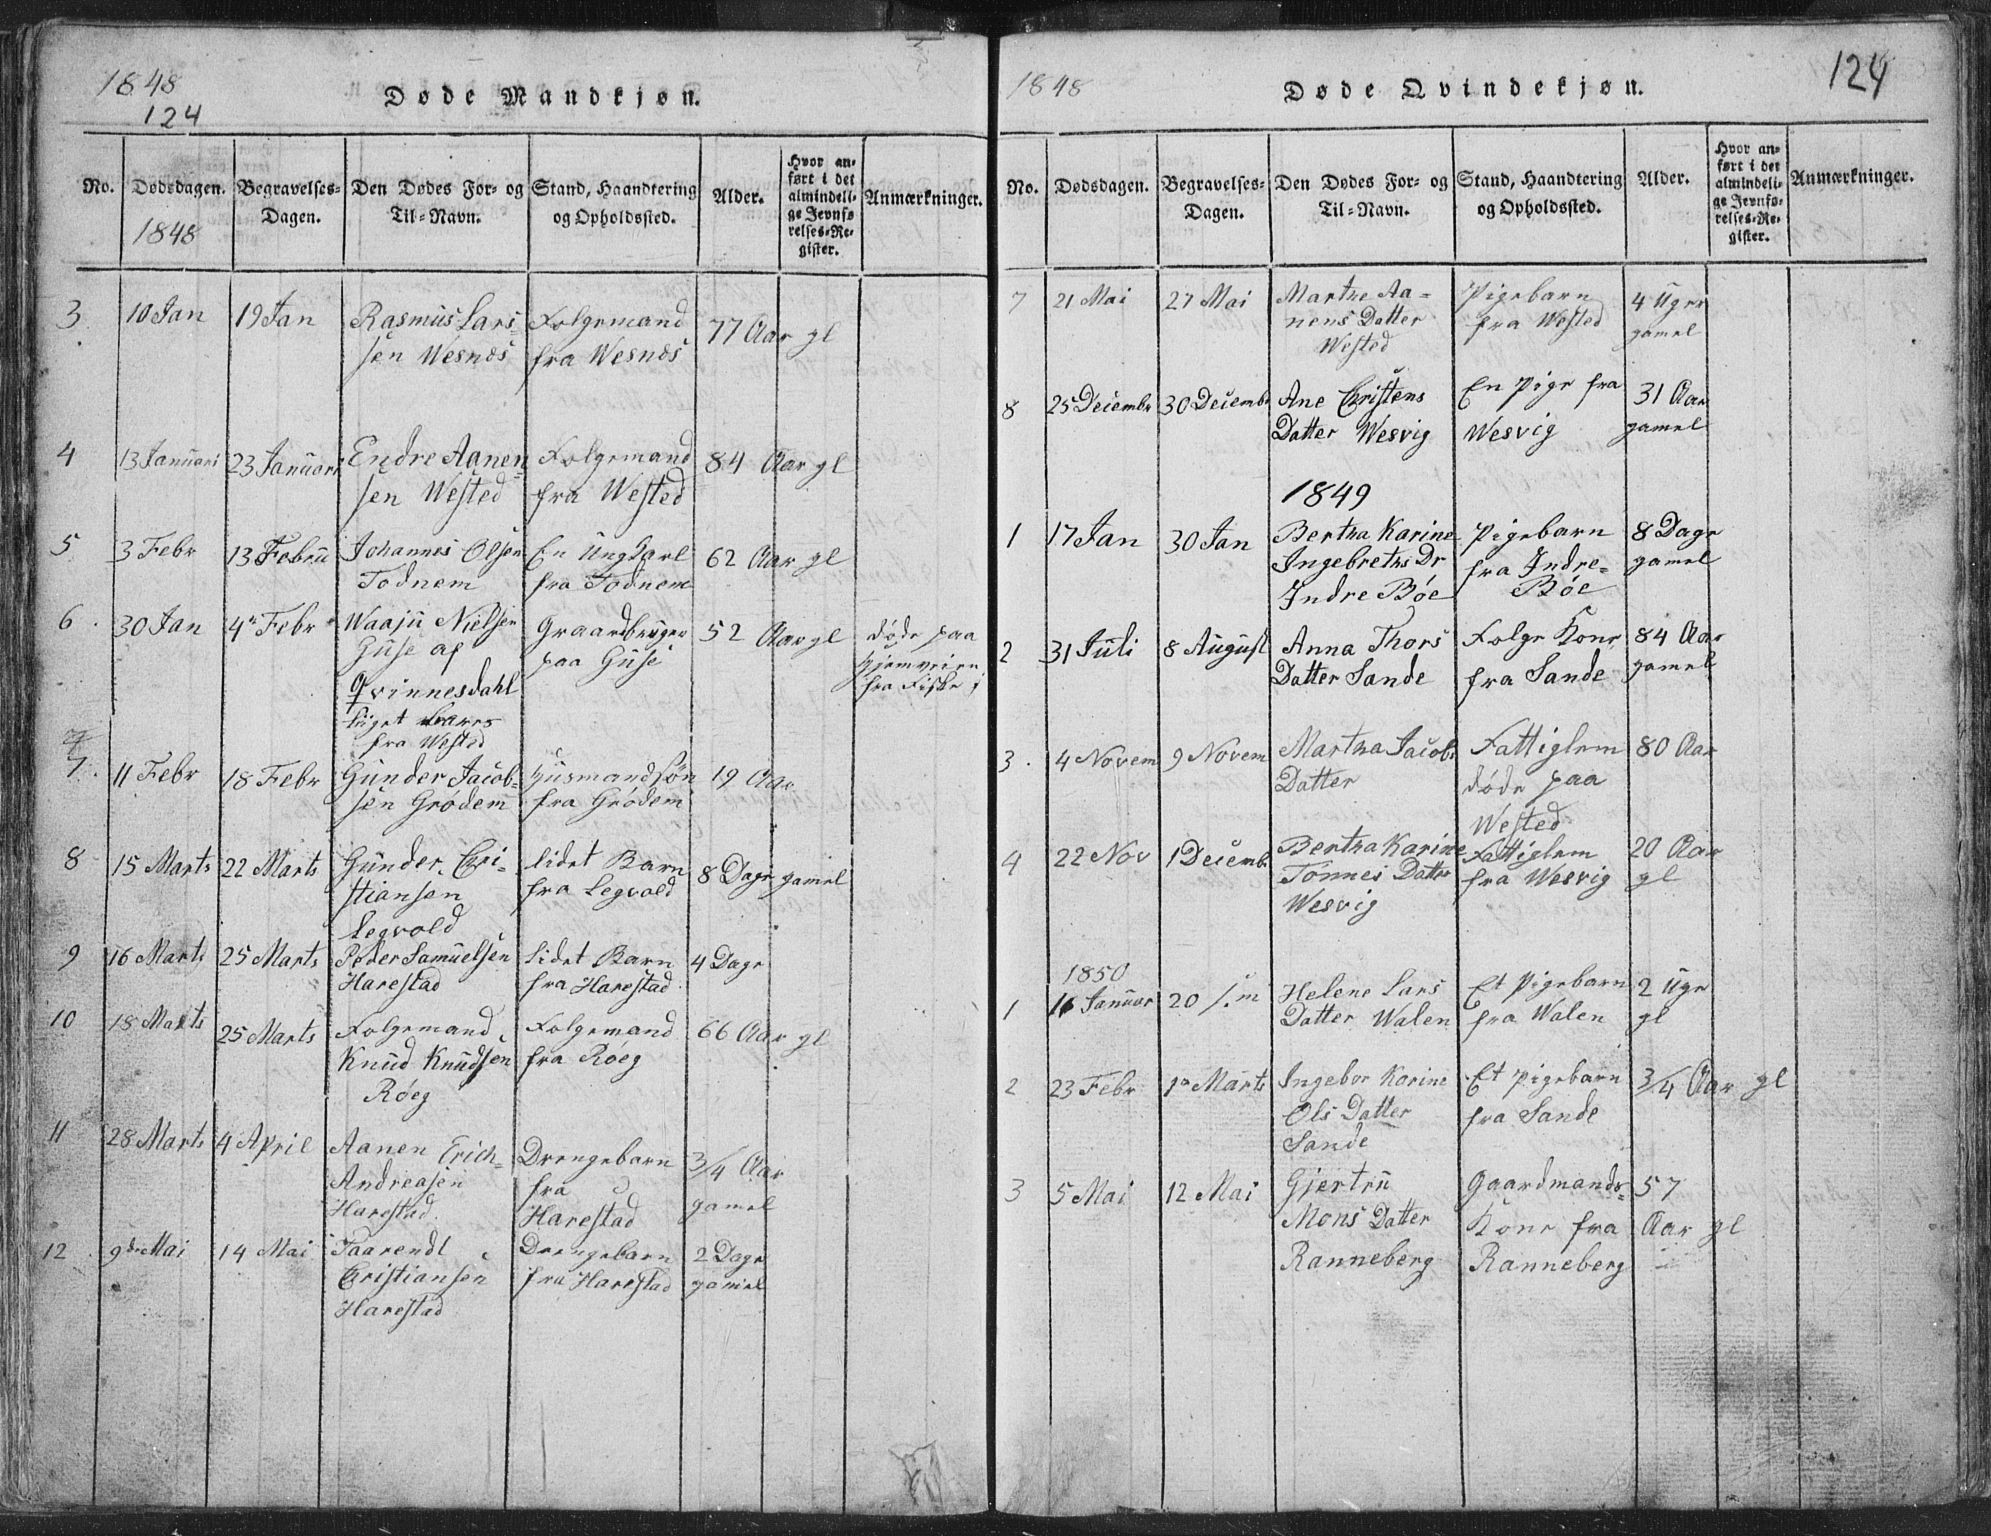 1848
124
Døde Mandkjøn.
No.
Dødsdagen.
1848
Begravelses-
Dagen.
Den Dødes For- og
Til-Navn.
Stand, Haandtering
og Opholdssted.
Alder.
Hvor an-
ført i det
almindeli-
ge Jevnfø-
relses-Re-
gister.
Anmærkninger.
3 10 Jan 19 Jan Rasmus Lars- Folgemand 77 Aar gl
sen Wesnes fra Wesnes
4 13 Januari 23 Januari Endre Aanen- Folgemand 84 Aar gl
sen Wested fra Wested
5 3 Febr 13 Febru Johannes Olsen En Ungkarl 62 Aar gl
Todnem fra Todnem
6 30 Jan 4de Febr Waaju Nielsen Graardbruger 52 Aar gl døde paa
Guse af paa Guse hjemveien
Qvinnesdahl fra Fiske
liget
fra Wested
7 11 Febr 18 Febr Gunder Jacob- Husmandsøn 19 Aar
sen Grødem fra Grødem
8 15 Marts 22 Marts Gunder Cri- lidet Barn 8 Dage gamel
stiansen fra Legvold
Legvold
9 16 Marts 25 Marts Peder Samuelsen lidet Barn 4 Dage
Harestad fra Harestad
10 18 Marts 25 Marts Folgemand Folgemand 66 Aar gl
Knud Knudsen fra Røeg
Røeg
11 28 Marts 4 April Aanen Erich- Drengebarn 3/4 Aar
Andreasen fra gamel
Harestad Harestad
12 9de Mai 14 Mai Taarendl Drengebarn 2 Dage
Cristiansen fra Harestad gamel
Harestad
1848
Døde Qvindekjøn.
124
No.
Dødsdagen.
Begravelses-
Dagen.
Den Dødes For- og
Til-Navn.
Stand, Haandtering
og Opholdssted.
Alder.
Hvor an-
ført i det
almindeli-
ge Jevnfø-
relses-Re-
gister.
Anmærkninger.
7 21 Mai 27 Mai Marthe Aa- Pigebarn 4 Uger
nens Datter fra Wested gamel
Wested
8 25 Decembr 30 Decembr Ane Cristens En Pige fra 31 Aar
Datter Wesvig Wesvig gamel
1849
1 17 Jan 30 Jan Bertha Karine Pigebarn 8 Dage
Ingebreths Dr fra Indre- gamel
Indre Bøe Bøe
2 31 Juli 8 August Anna Thors Folge Kone 84 Aar
Datter Sande fra Sande gamel
3 4 Novem 9 Novem Martha Jacobs Fattiglem 80 Aar
Datter døde paa
Wested
4 22 Nov 1 Decembr Bertha Karine Fattiglem 20 Aar
Tønnes Datter fra Wesvig gl
Wesvig
1850
1 16 Januar 20 s.m Helene Lars Et Pigebarn 2 Uge
Datter Walen fra Walen gl
2 23 Febr 1te Marts Ingebor Karine Et Pigebarn 3/4 Aar gl
Ols Datter fra Sande
Sande
3 5 Mai 12 Mai Gjertru Gaardmands- 57
Mons Datter Kone fra Aar gl
Ranneberg Ranneberg